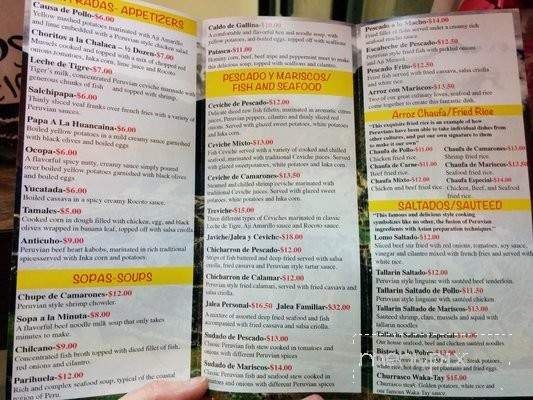 ENTRADAS- APPETIZERS
Causa de Pollo-$6.00
Yellow mashed potatoes marinated with Aji Amarillo
and lime embedded with a Peruvian style chicken salad.
Choritos a la Chalaca – ½ Dozen-$7.00
Mussels cooked and topped with a mix of red onions,
tomatoes, Inka corn, lime juice and Rocoto
Leche de Tigre-$7.00
Tiger's milk, concentrated Peruvian ceviche marinade with
generous chunks of fish and topped with shrimp.
Salchipapa-$6.00
Thinly sliced veal franks over french fries with a variety of
Peruvian sauces.
Papa A La Huancaina-$6.00
Boiled yellow potatoes in a mild creamy sauce garnished
with black olives and boiled eggs
Ocopa-$6.00
A flavorful spicy nutty, creamy sauce simply poured
over boiled yellow potatoes garnished with black olives
and boiled eggs
Yucatada-$6.00
Boiled cassava in a spicy creamy Rocoto sauce.
Tamales-$5.00
Cooked corn in dough filled with chicken, egg, and black
olives wrapped in banana leaf, topped with salsa criolla.
Anticucho-$9.00
Peruvian beef heart kabobs, marinated in rich traditional
spices served with Inka corn and potatoes.
SOPAS-SOUPS
Chupe de Camarones-$12.00
Peruvian style shrimp chowder.
Sopa a la Minuta-$8.00
A flavorful beef noodle milk soup that only takes
minutes to make.
Chilcano-$9.00
Concentrated fish broth topped with diced fillet of fish,
red onions and cilantro.
Parihuela-$12.00
Rich and complex seafood soup, typical of the coastal
region of Peru.
Caldo de Gallina-$10.00
A comfortable and flavorful hen and noodle soup, with
yellow potatoes, and boiled eggs, topped off with scallions
Patasca-$11.00
Hominy corn, beef, beef tripe and peppermint meet to make
this delicious soup, topped with scallions and cilantro.
PESCADO Y MARISCOS/
FISH AND SEAFOOD
Ceviche de Pescado-$12.00
Delicate sliced raw fish filletes, marinated in aromatic citrus
juices, Peruvian peppers, cilantro and thinly sliced red
onions. Served with glazed sweet potatoes, white potatoes
and Inka corn.
Ceviche Mixto-$13.00
Fish Ceviche served with a variety of cooked and chilled
seafood, marinated with traditional Ceviche juices. Served
with glazed sweet potatoes, white potatoes and Inka corn.
Ceviche de Camarones-$13.50
Steamed and chilled shrimp ceviche marinated with
traditional Ceviche juices. Served with glazed sweet
potatoes, white potatoes and Inka corn.
Treviche-$15.00
Three different types of Ceviches marinated in classic
Leche de Tigre, Aji Amarillo sauce and Rocoto sauce.
Javiche/Jalea y Ceviche-$18.00
Chicharron de Pescado-$12.00
Strips of fish battered and deep fried served with salsa
criolla, fried cassava and Peruvian style tartar sauce.
Chicharron de Calamar-$12.00
Peruvian style fried calamari, served with fried cassava
and salsa criolla.
Jalea Personal-$16.50 Jalea Familiar-$32.00
A mixture of assorted deep fried seafood and fish
accompanied with fried cassava and salsa criolla.
Sudado de Pescado-$13.00
Classic Peruvian fish stew cooked in tomatoes and
onions with different Peruvian spices
Sudado de Mariscos-$14.00
Classic Peruvian fish and seafood stew cooked in
tomatoes and onions with different Peruvian spices
Pescado a lo Macho-$14.00
Fried fillet of fishes served under a creamy rich
seafood rocoto sauce.
Escabeche de Pescado-$12.50
Peruvian style fried fish with pickled onions
and Aji Amarillo.
Pescado Frito-$12.50
Fried fish served with fried cassava, salsa criolla
and white rice.
Arroz con Mariscos-$13.50
Two of our great culinary loves, seafood and rice
come together to create this fantastic dish.
Arroz Chaufa/Fried Rice
"This exquisite fried rice is an example of how
Peruvians have been able to take individual dishes from
other cultures, and put our own signature to them
to make it our own"
Chaufa de Pollo-$11.00 Chaufa de Camarones-$13.00
Chicken fried rice. Shrimp fried rice.
Chaufa de Carne-$11.00 Chaufa de Mariscos-$13.50
Beef fried rice. Seafood fried rice.
Chaufa Mixto-$12.00 Chaufa Especial-$14.00
Chicken and beef fried rice. Chicken, Beef, and Seafood
fried rice
SALTADOS/SAUTEED
"This famous and delicious style cooking
symbolizes like no other, the fusion of Peruvian
ingredients with Asian preparation techniques."
Lomo Saltado-$12.00
Sliced beef stir fried with red onions, tomatoes, soy sauce,
vinegar and cilantro mixed with french fries and served with
white rice.
Tallarin Saltado-$12.00
Peruvian style linguine with sautéed beef tenderloin.
Tallarin Saltado de Pollo-$11.50
Peruvian style linguine with sautéed chicken
Tallarin Saltado de Mariscos-$13.00
Sauteed shrimp, clams, mussels and squid with
tallarin noodles
Tallarin Saltado Especial-$14.00
Our house seafood, beef and chicken sautéed with
tallarin noodles
Bisteck a lo Pobre-$13.00
Steak, potatoes,
white rice, hot dog, egg, pet plantains and fried eggs.
Churrasco Waka-Tay $15.00
Churrasco steak. Golden potatoes, white rice and
our famous Waka-Tay sauce.